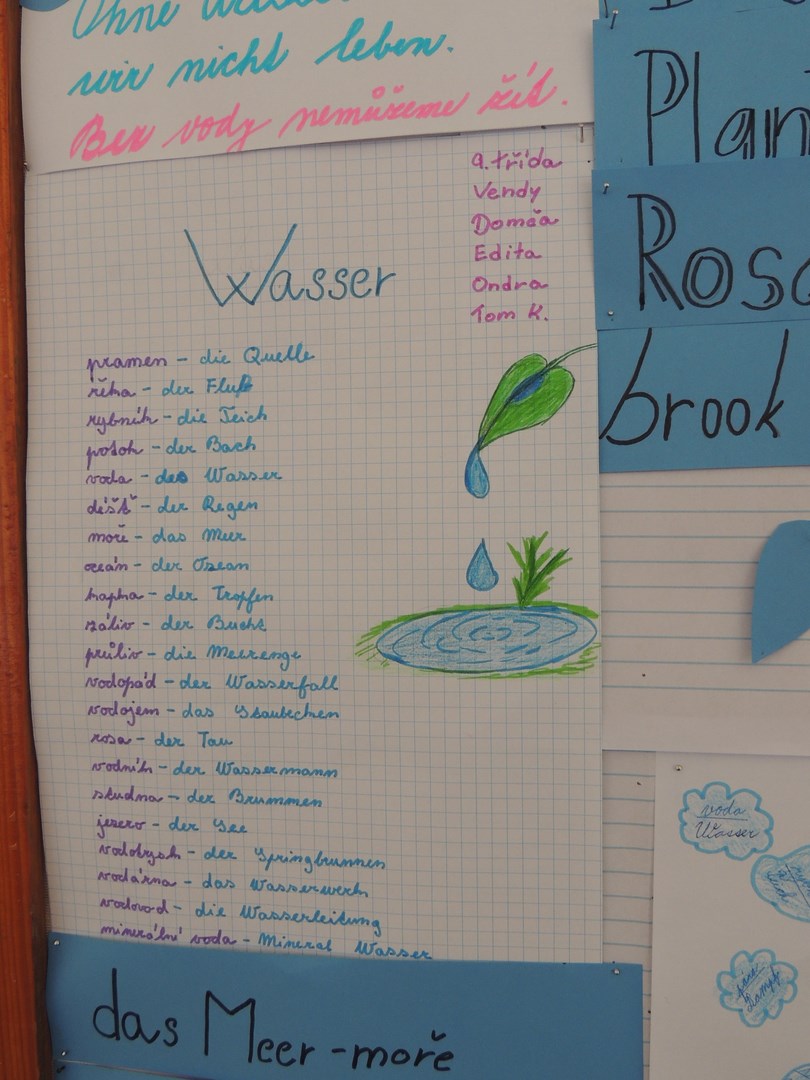 Ohne
wir nicht leben.
Bez vody nemůžeme žít.
9. třída
Vendy
Domča
Edita
Ondra
Tom K.
Wasser
pramen - die Quelle
řeka - der Fluß
rybník - die Teich
potok - der Bach
voda - das Wasser
déšť - der Regen
moře - das Meer
oceán - der Ozean
kapka - der Tropfen
záliv - der Bucht
průliv - die Meerenge
vodopád - der Wasserfall
vodojem - das Staubecken
rosa - der Tau
vodník - der Wassermann
studna - der Brummen
jezero - der See
vodotrysk - der Springbrunnen
vodárna - das Wasserwerk
vodovod - die Wasserleitung
minerální voda - Mineral Wasser
das Meer - moře
Plan
Ros
brook
voda
Wasser
pára
Dampf